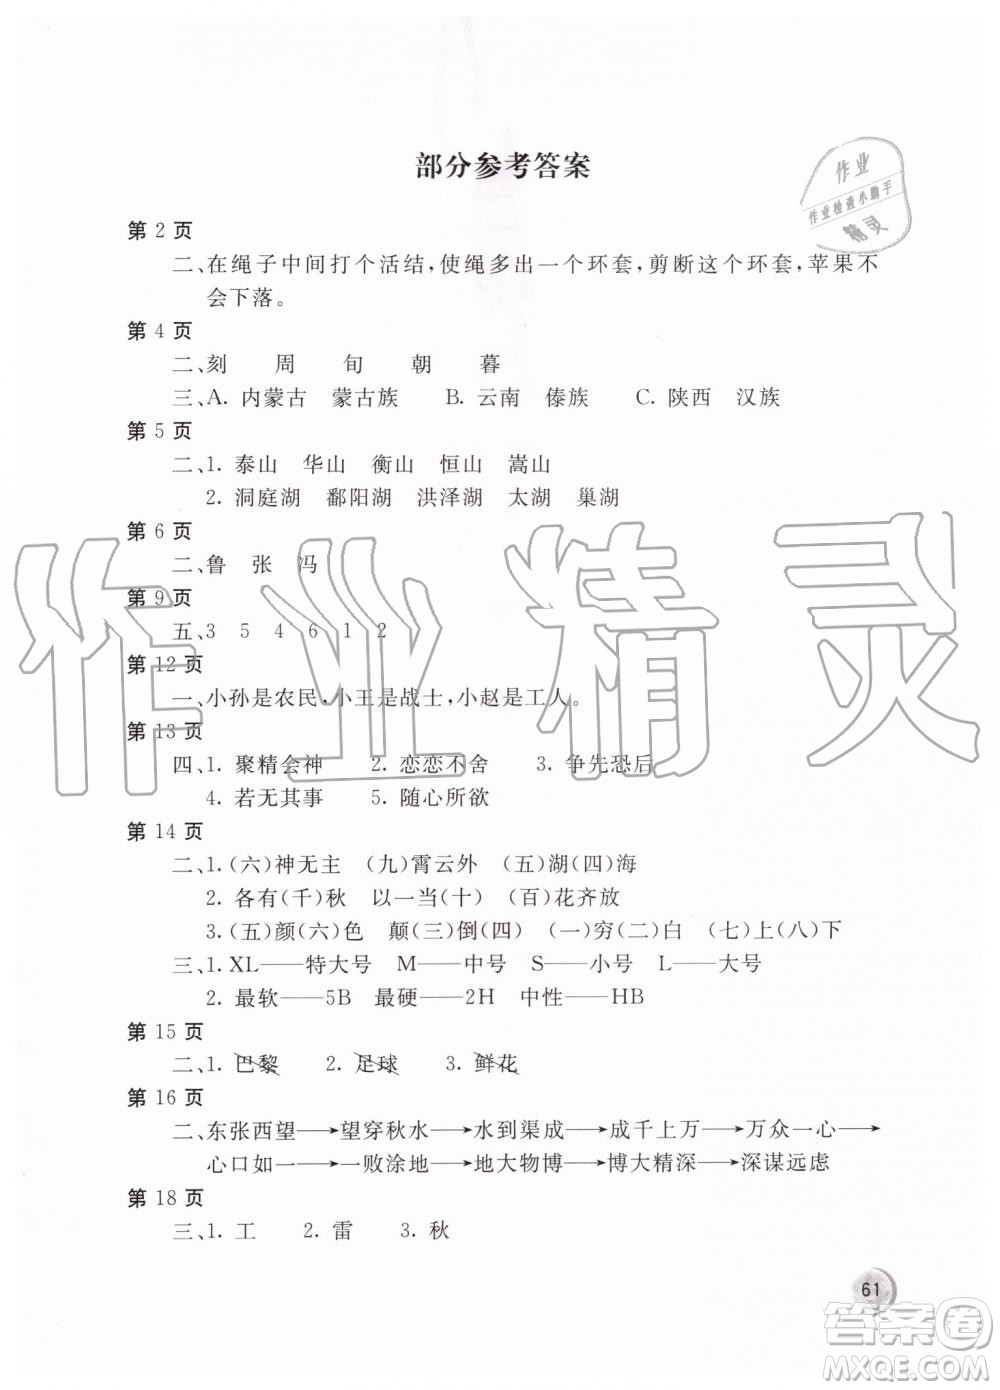 部分参考答案
作业
作业检查小助手
精灵
第 2 页
二、在绳子中间打个活结，使绳多出一个环套，剪断这个环套，苹果不
会下落。
第 4 页
二、刻 周 旬 朝 暮
三、A. 内蒙古 蒙古族 B. 云南 傣族 C. 陕西 汉族
第 5 页
二、1. 泰山 华山 衡山 恒山 嵩山
2. 洞庭湖 鄱阳湖 洪泽湖 太湖 巢湖
第 6 页
二、鲁 张 冯
第 9 页
五、3 5 4 6 1 2
第 12 页
一、小孙是农民，小王是战士，小赵是工人。
第 13 页
四、1. 聚精会神 2. 恋恋不舍 3. 争先恐后
4. 若无其事 5. 随心所欲
第 14 页
二、1.(六)神无主 (九)霄云外 (五)湖(四)海
2. 各有(千)秋 以一当(十) (百)花齐放
3.(五)颜(六)色 颠(三)倒(四) (一)穷(二)白 (七)上(八)下
三、1. XL——特大号 M——中号 S——小号 L——大号
2. 最软——5B 最硬——2H 中性——HB
第 15 页
二、1. 巴黎 2. 足球 3. 鲜花
第 16 页
二、东张西望→望穿秋水→水到渠成→成千上万→万众一心→
心口如一→一败涂地→地大物博→博大精深→深谋远虑
第 18 页
三、1. 工 2. 雷 3. 秋
61
作业精灵
答案卷
MXQE.COM